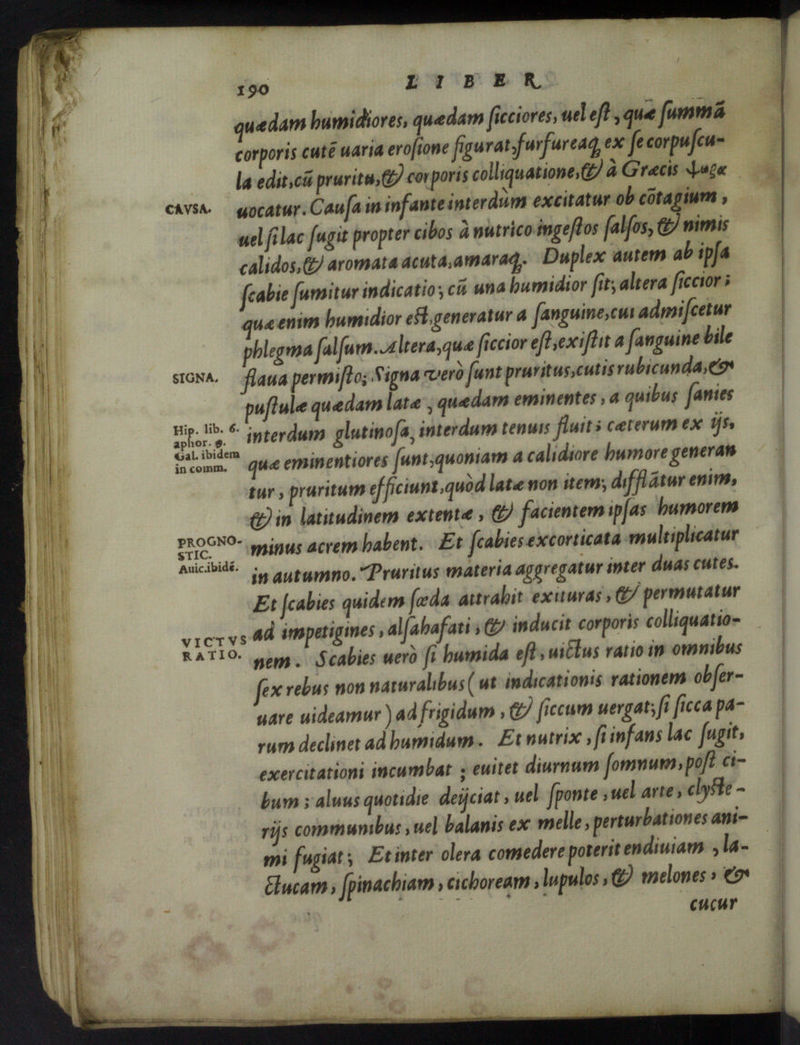 190 LIBER
quædam humidiores, quædam ſicciores, uel eſt, quæ ſummã
corporis cutẽ uaria eroſione figurat, furfureaq; ex ſe corpuſcu-
la edit, cũ pruritu, & corporis colliquatione, & à Græcis ψώρα
CAVSA. uocatur. Cauſa in infante interdùm excitatur ob cõtagium,
uel ſi lac ſugit propter cibos à nutrice ingeſtos ſalſos, & nimis
calidos, & aromata acuta, amaraq;. Duplex autem ab ipſa
ſcabie ſumitur indicatio; cũ una humidior ſit; altera ſiccior;
quæ enim humidior eſt, generatur a ſanguine, cui admiſcetur
phlegma ſalſum. Altera, quæ ſiccior eſt, exiſtit a ſanguine bile
SIGNA. flaua permiſto; Signa verò ſunt pruritus, cutis rubicunda, &
puſtulæ quædam latæ, quædam eminentes, a quibus ſanies
Hip. lib. 6. aphor. 9. interdum glutinoſa, interdum tenuis fluit; cæterum ex ijs,
Gal. ibidem in comm. quæ eminentiores ſunt, quoniam a calidiore humore generan
tur, pruritum efficiunt, quòd latæ non item; difflãtur enim,
& in latitudinem extentæ, & facientem ipſas humorem
PROGNOSTIC. minus acrem habent. Et ſcabies excorticata multiplicatur
Auic. ibidẽ. in autumno. Pruritus materia aggregatur inter duas cutes.
Et ſcabies quidem fœda attrahit exituras, & permutatur
VICTVS ad impetigines, alſahafati, & inducit corporis colliquatio-
RATIO. nem. Scabies uerò ſi humida eſt, uictus ratio in omnibus
ſex rebus non naturalibus (ut indicationis rationem obſer-
uare uideamur) ad frigidum, & ſiccum uergat; ſi ſicca pa-
rum declinet ad humidum. Et nutrix, ſi infans lac ſugit,
exercitationi incumbat; euitet diurnum ſomnum, poſt ci-
bum; aluus quotidie deijciat, uel ſponte, uel arte, clyſte-
rijs communibus, uel balanis ex melle, perturbationes ani-
mi fugiat; Et inter olera comedere poterit endiuiam, la-
ctucam, ſpinachiam, cichoream, lupulos, & melones, &
cucur